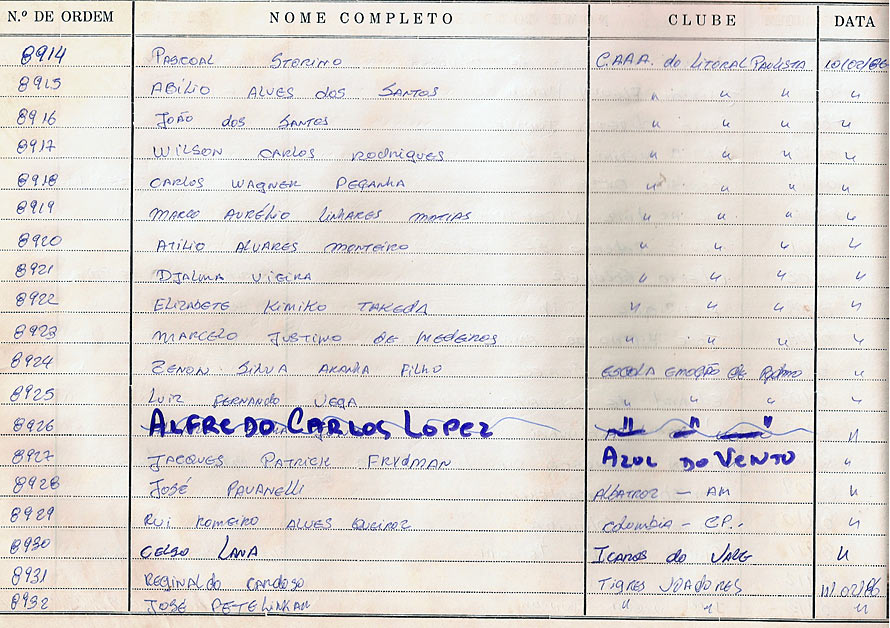 N.º DE ORDEM NOME COMPLETO CLUBE DATA
8914 PASCOAL STORINO C.A.A.A. do LITORAL PAULISTA 10/02/86
8915 ABÍLIO ALVES dos SANTOS " " " "
8916 JOÃO dos SANTOS " " " "
8917 WILSON CARLOS RODRIGUES " " " "
8918 CARLOS WAGNER PEÇANHA " " " "
8919 MARCO AURÉLIO LINHARES MATIAS " " " "
8920 ATILIO ALVARES MONTEIRO " " " "
8921 DJALMA VIEIRA " " " "
8922 ELIZABETE KIMIKO TAKEDA " " " "
8923 MARCELO JUSTINO DE MEDEIROS " " " "
8924 ZENON SILVA ARANHA FILHO ESCOLA EMOÇÃO EM RITMO "
8925 LUIZ FERNANDO VEGA " " " "
8926 ALFREDO CARLOS LOPEZ " " " "
8927 JACQUES PATRICK FRYDMAN AZUL DO VENTO "
8928 JOSÉ PAVANELLI ALBATROZ - AM "
8929 RUI ROMEIRO ALVES QUEIROZ COLOMBIA - CP.- "
8930 CELSO LANA ICAROS do VALE "
8931 REGINALDO CARDOSO TIGRES VOADORES 11/02/86
8932 JOSÉ " " "